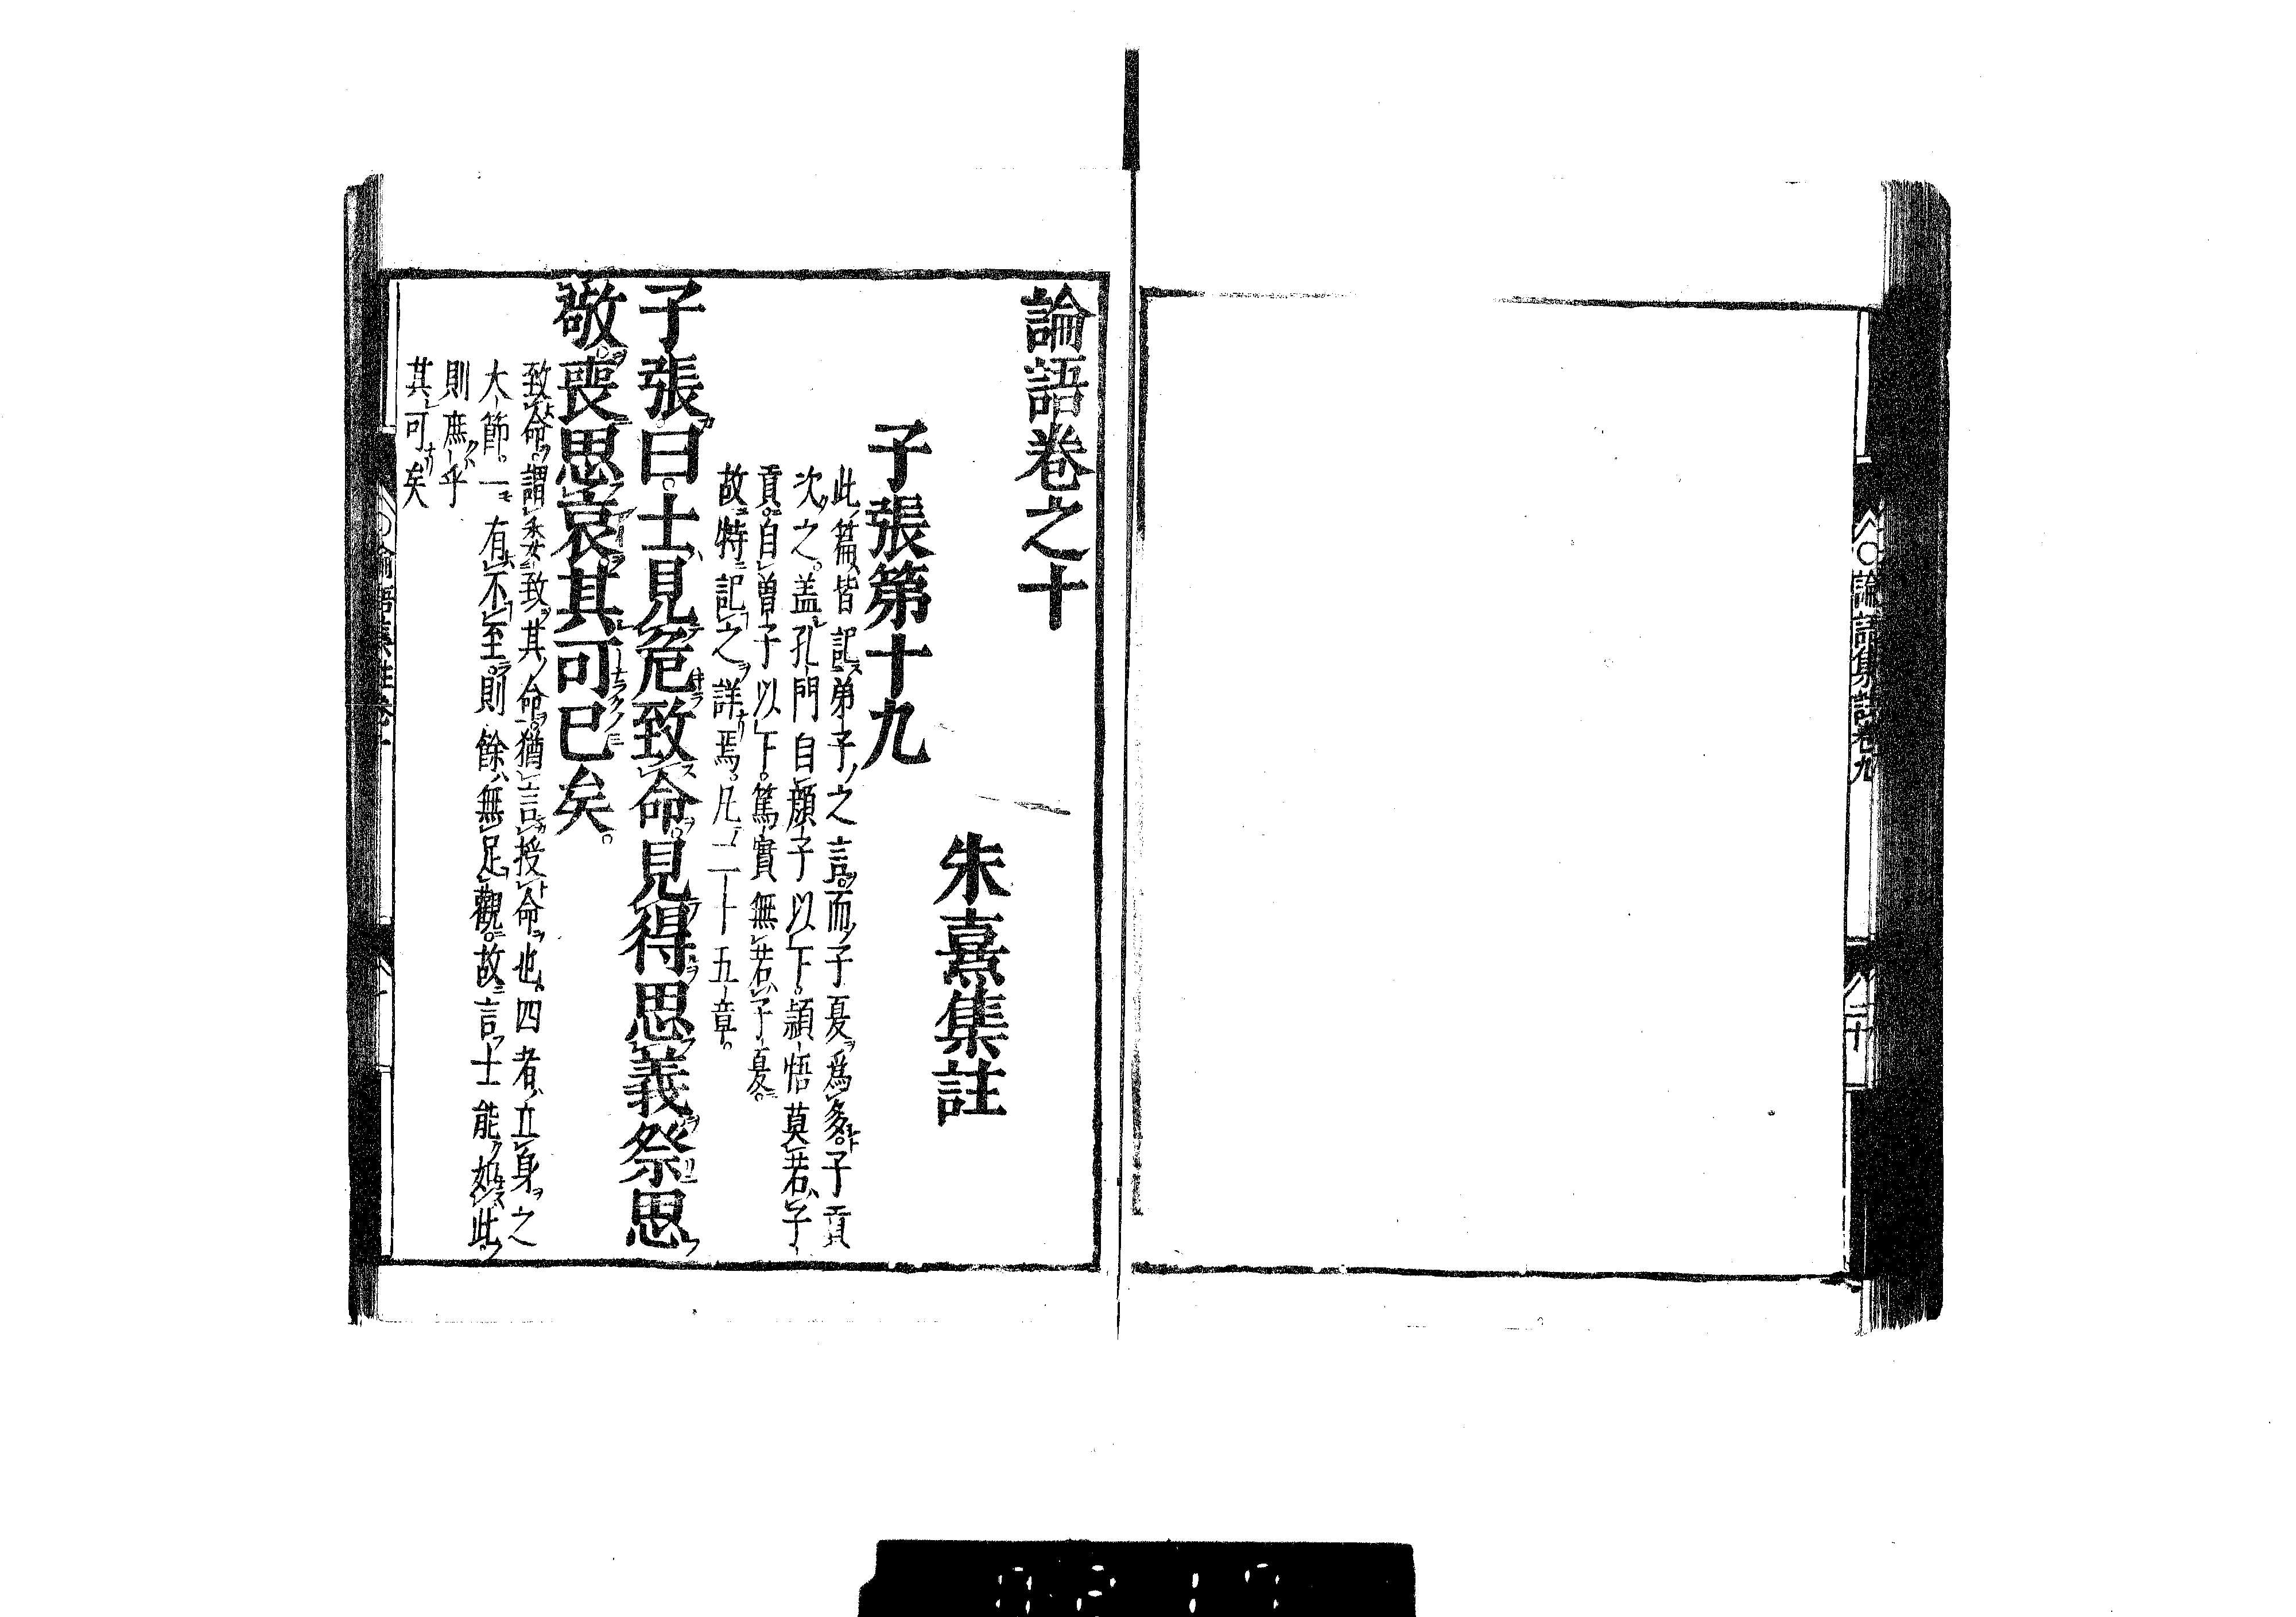 論語集註卷九
二十
論語卷之十
朱熹集註
子張第十九
此篇皆記弟子之言而子夏爲多子貢
次之蓋孔門自顔子以下頴悟莫若子
貢自曽子以下篤實無若子夏
故特記之詳焉凡二十五章
子張曰士見危致命見得思義祭思
敬喪思哀其可已矣
致命謂委致其命猶言授命也四者立身之
大節一有不至則餘無足觀故言士能如此
則庶乎
其可矣
論語集註卷十